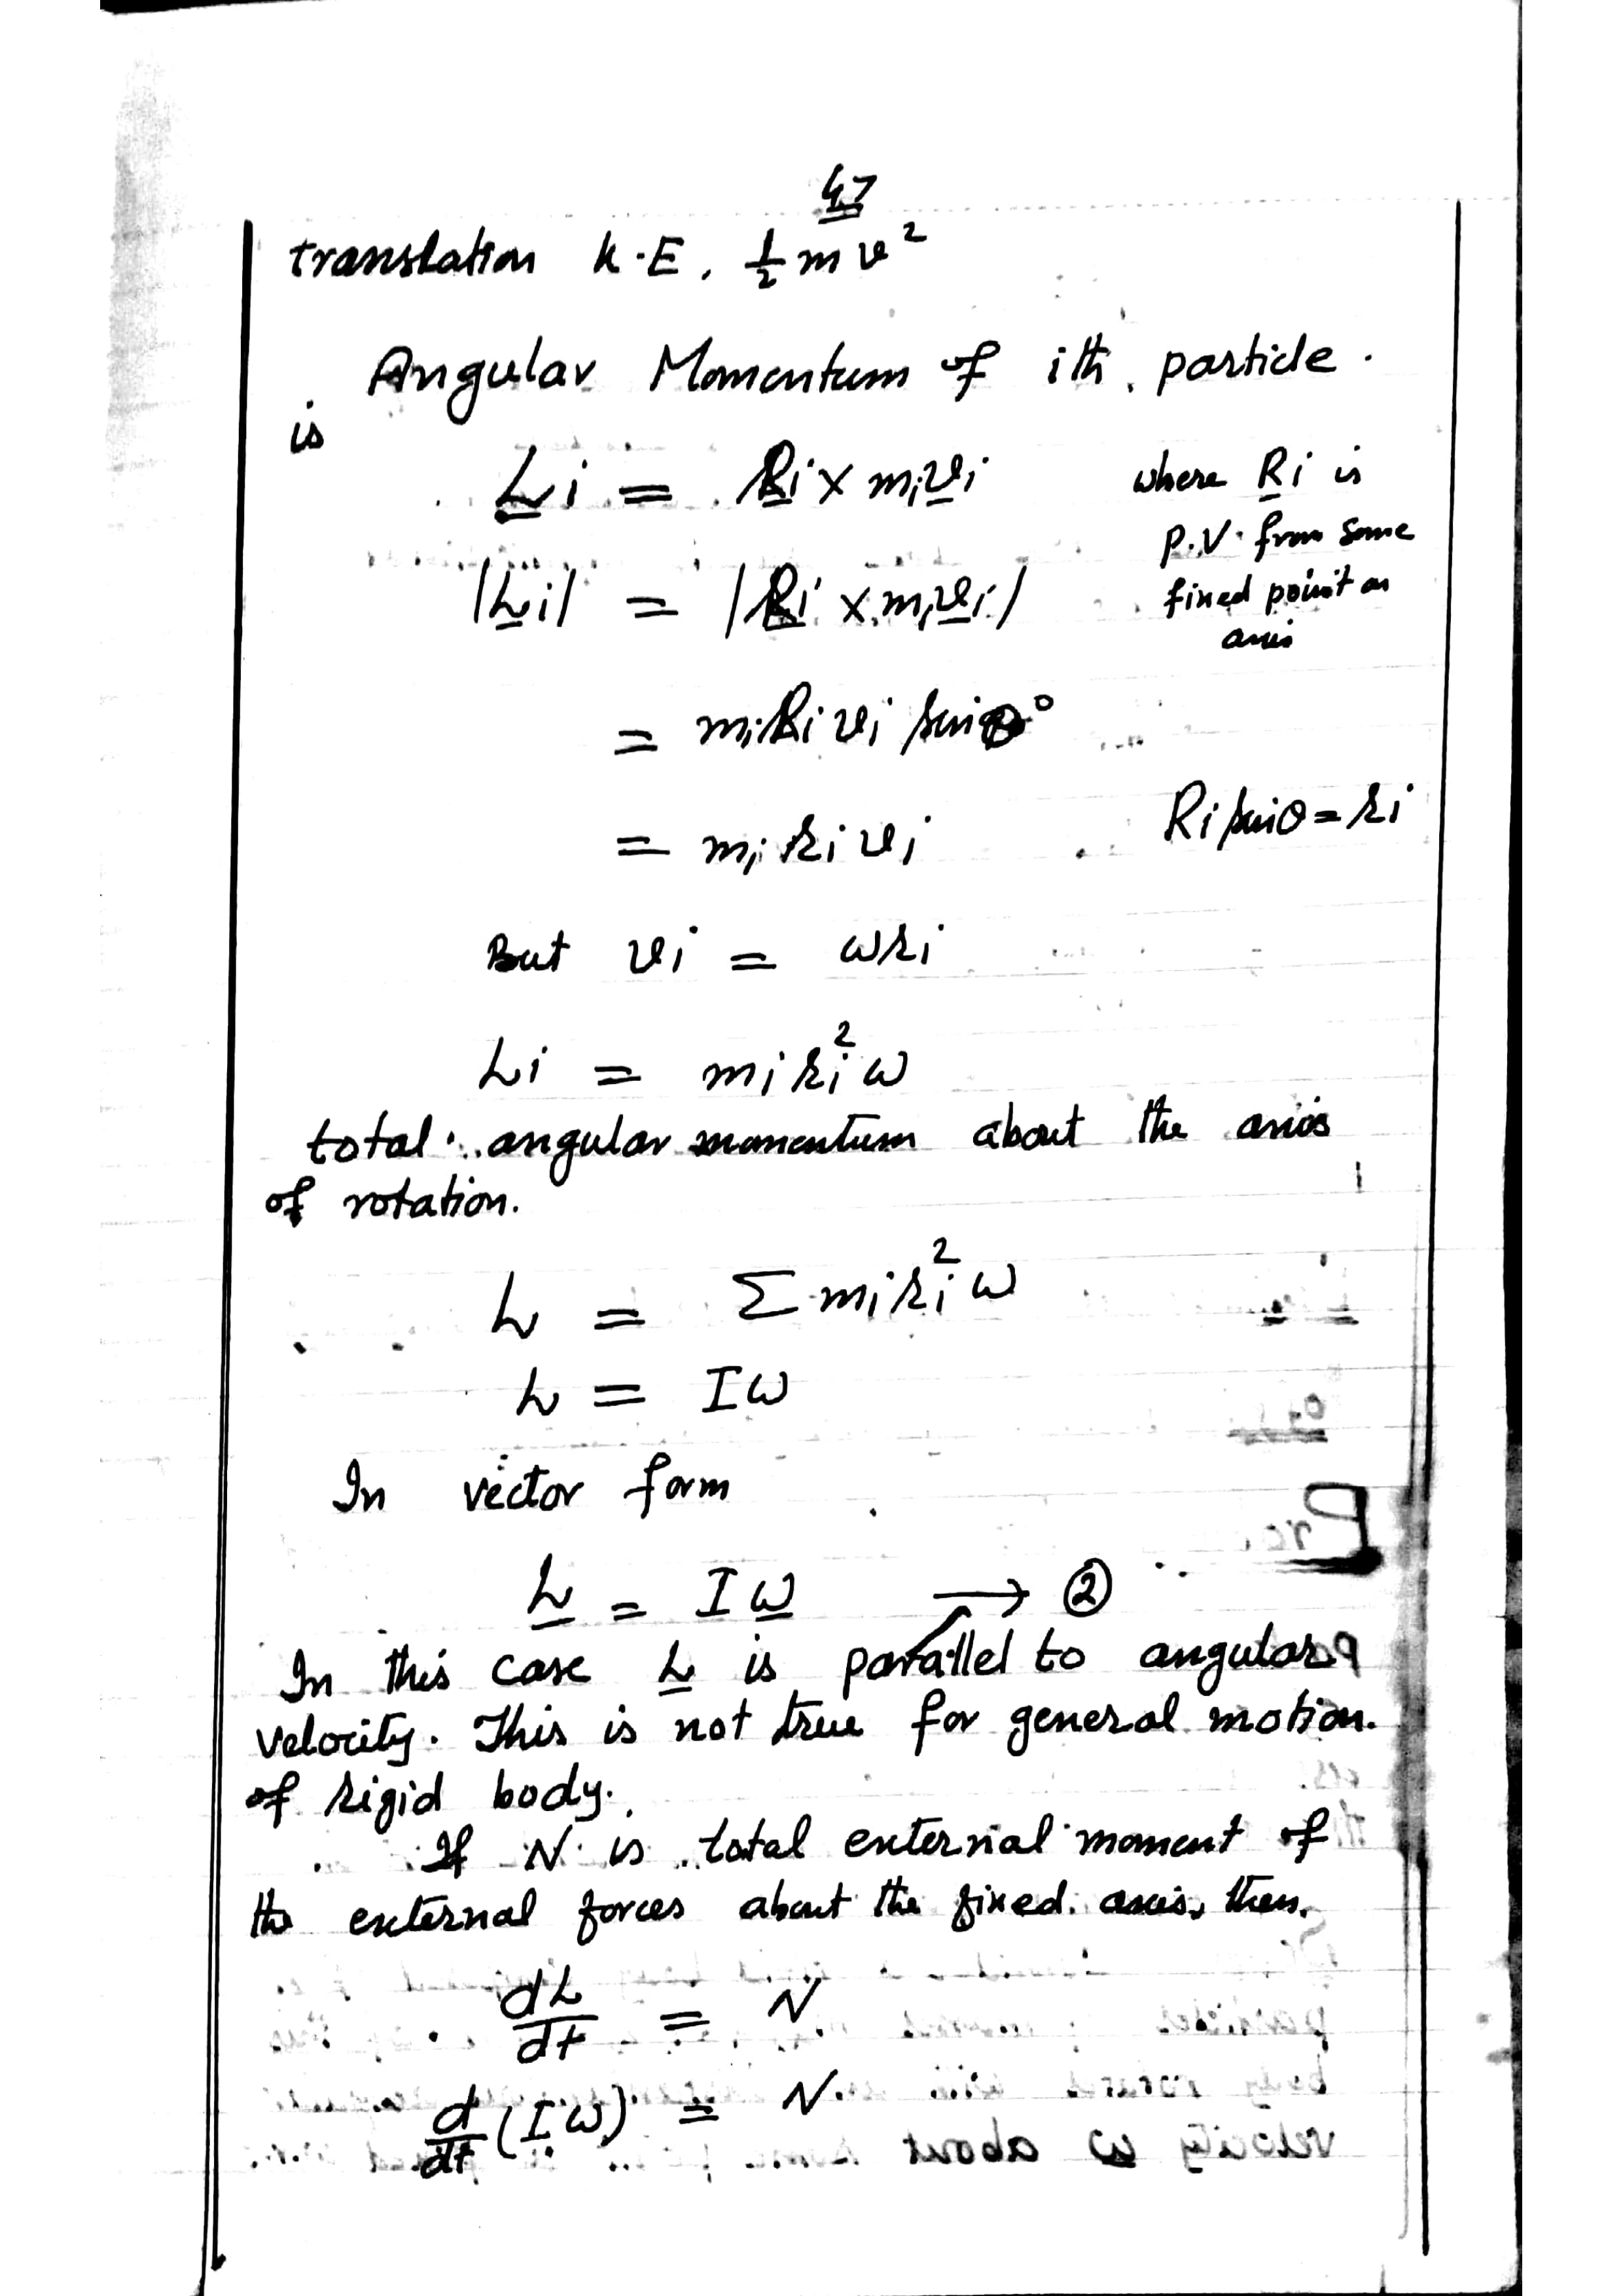 47
translation K.E. ½ m v²
Angular Momentum of ith particle.
is
L̲i = R̲i × miv̲i where R̲i is
P.V. from some
|L̲i| = |R̲i × miv̲i| fixed point on
axis
= mi Ri vi sinθ°
= mi ri vi Ri sinθ = ri
But vi = ωri
Li = mi ri² ω
total angular momentum about the axis
of rotation.
L = Σ mi ri² ω
L = Iω
In vector form
L̲ = I ω̲ → ②
In this case L̲ is parallel to angular
velocity. This is not true for general motion.
of rigid body.
If N is total external moment of
the external forces about the fixed. axis, then.
dL/dt = N
d/dt (Iω) = N